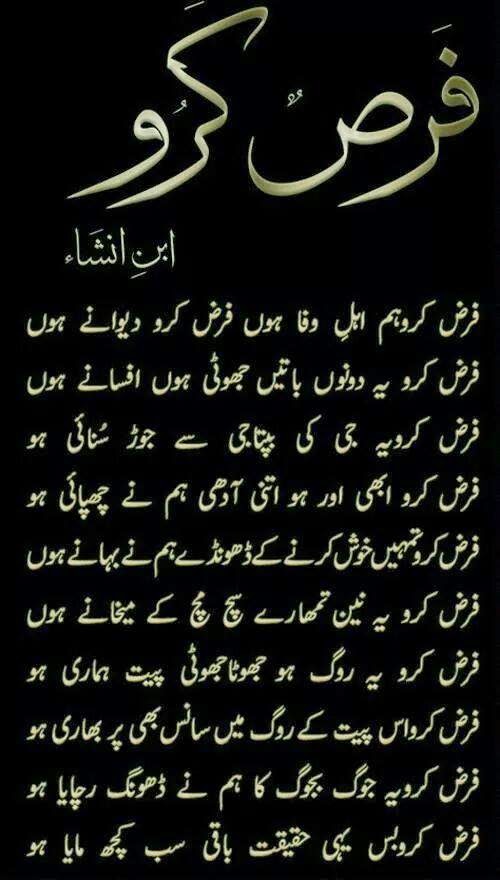 فرض کرو
ابنِ انشاء
فرض کرو ہم اہلِ وفا ہوں فرض کرو دیوانے ہوں
فرض کرو یہ دونوں باتیں جھوٹی ہوں افسانے ہوں
فرض کرو یہ جی کی بپتا جی سے جوڑ سُنائی ہو
فرض کرو ابھی اور ہو اتنی آدھی ہم نے چھپائی ہو
فرض کرو تمہیں خوش کرنے کے ڈھونڈے ہم نے بہانے ہوں
فرض کرو یہ نین تمھارے سچ مچ کے میخانے ہوں
فرض کرو یہ روگ ہو جھوٹا جھوٹی پیت ہماری ہو
فرض کرو اس پیت کے روگ میں سانس بھی پر بھاری ہو
فرض کرو یہ جوگ بجوگ کا ہم نے ڈھونگ رچایا ہو
فرض کرو بس یہی حقیقت باقی سب کچھ مایا ہو